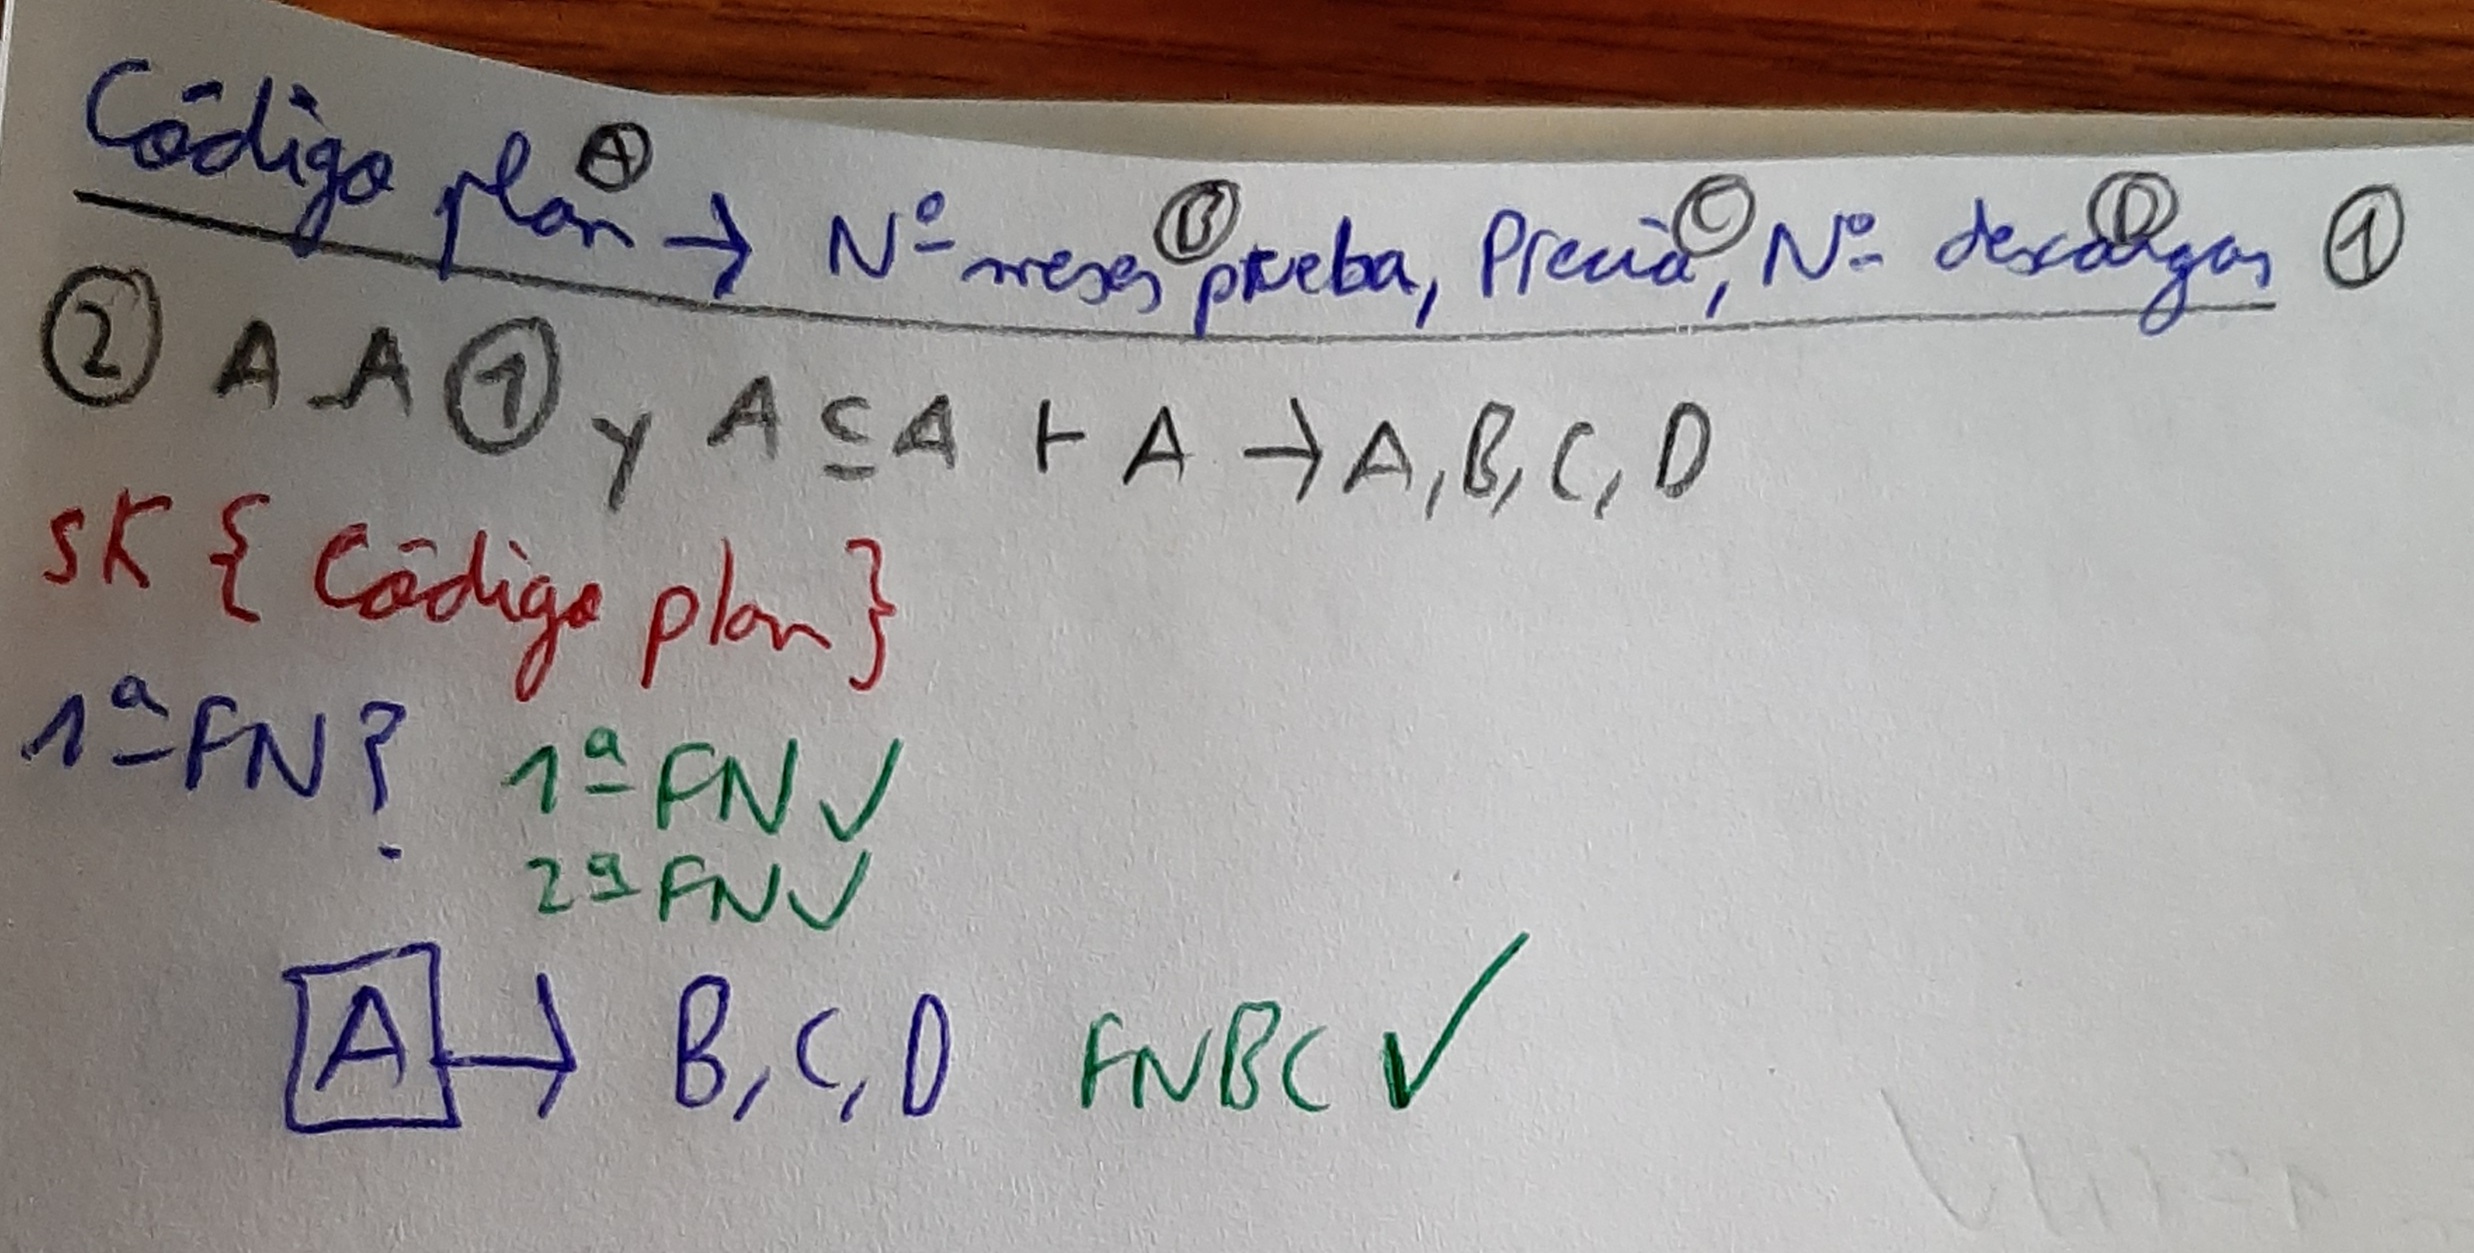 Código plan Ⓐ → Nº meses Ⓑ prueba, Precio Ⓒ, Nº descargas Ⓓ ①
② A A ① y A ⊆ A ⊢ A → A, B, C, D
SK { Código plan }
1ª FN? 1ª FN ✓
2ª FN ✓
A → B, C, D FNBC ✓